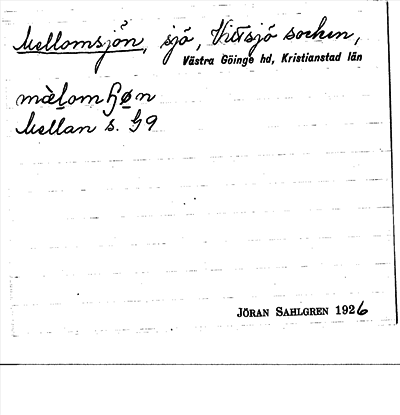 Mellomsjön, sjö, Vittsjö socken,
Västra Göinge hd, Kristianstad län
Mellan s. G9
JÖRAN SAHLGREN 1926